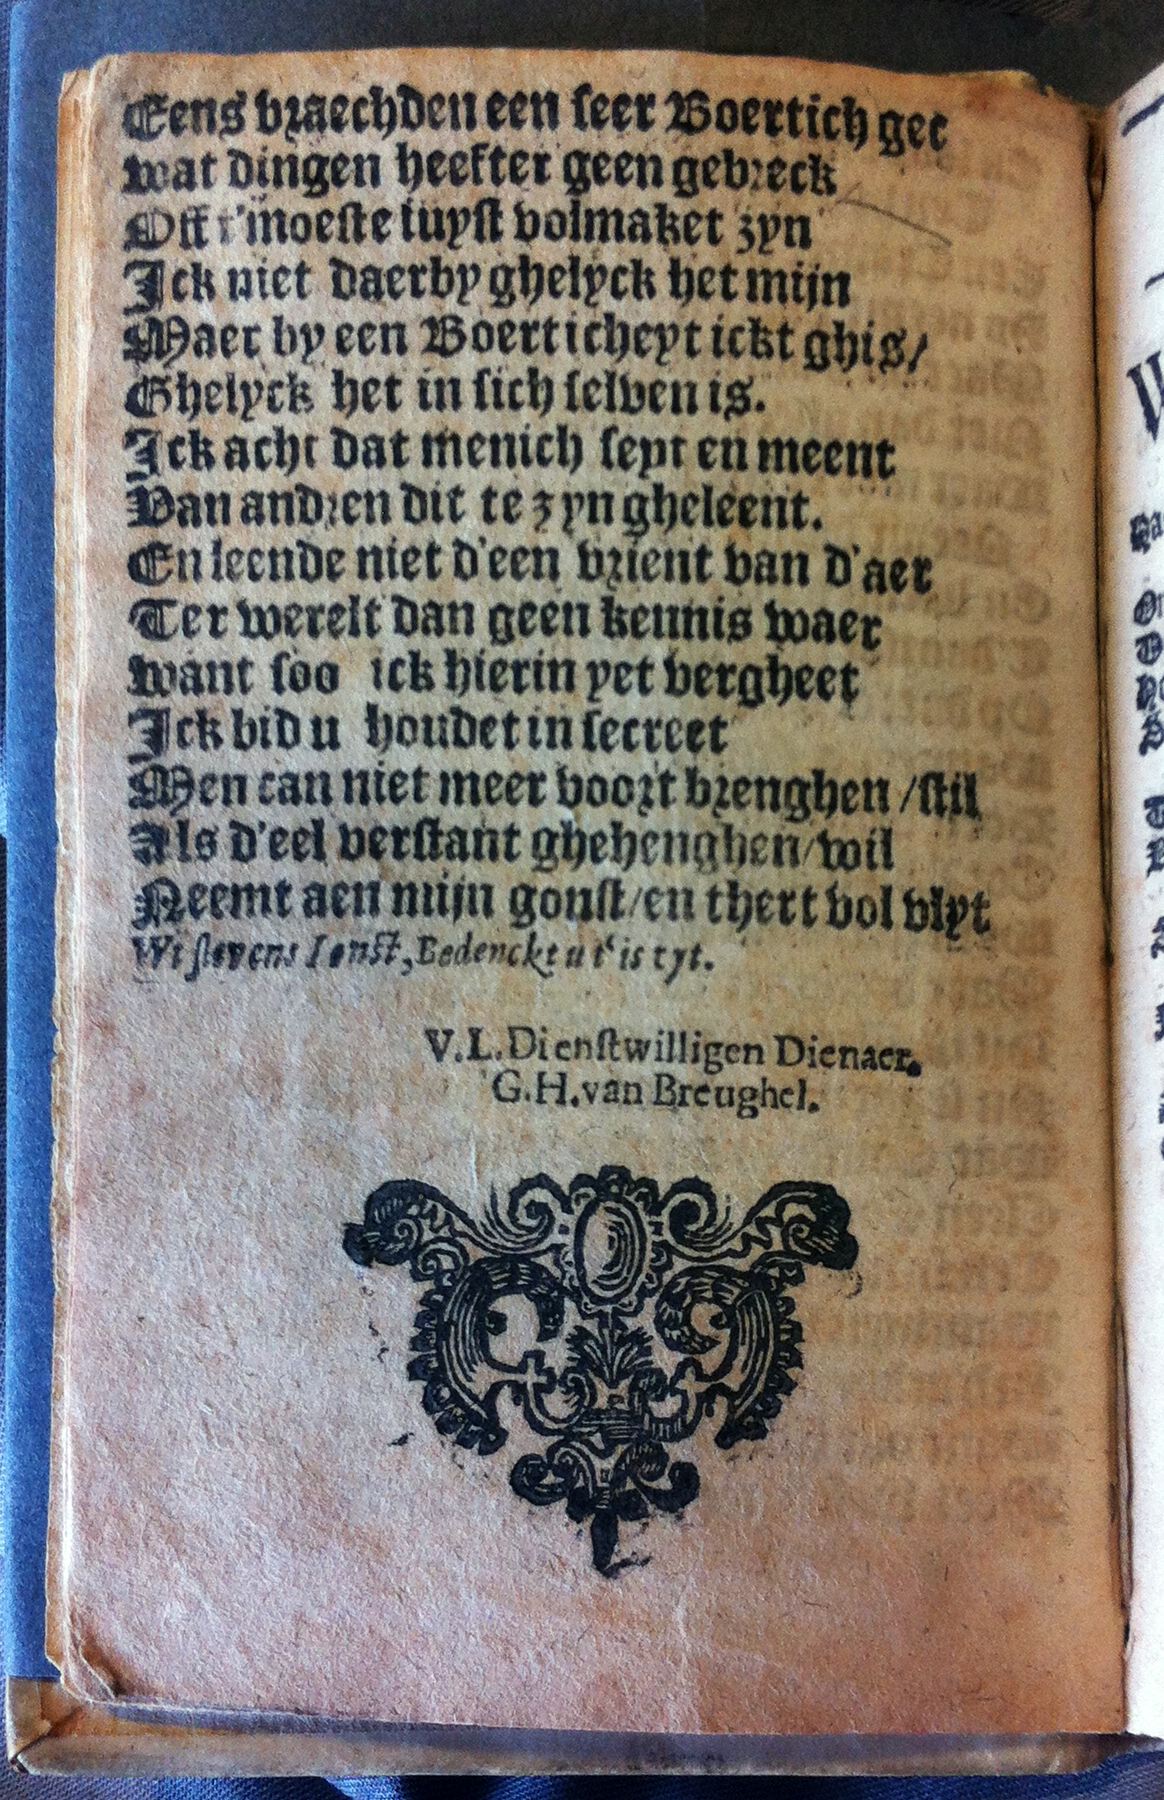 Eens vraechden een seer Boertich gec
wat dingen heefter geen gebreck
Off t'moeste iuyst volmaket zyn
Ick niet daerby ghelyck het mijn
Maer by een Boerticheyt ickt ghis/
Ghelyck het in sich selven is.
Ick acht dat menich seyt en meent
Van andren dit te zyn gheleent.
En leende niet d'een vrient van d'aer
Ter werelt dan geen kennis waer
want soo ick hierin yet vergheet
Ick bid u houdet in secreet
Men can niet meer voort brenghen /stil
Als d'eel verstant ghehenghen/wil
Neemt aen mijn gonst/en thert vol vlyt
Wt slevens Ionst, Bedenckt u t'is tyt.
V.L.Dienstwilligen Dienaer.
G.H.van Breughel.